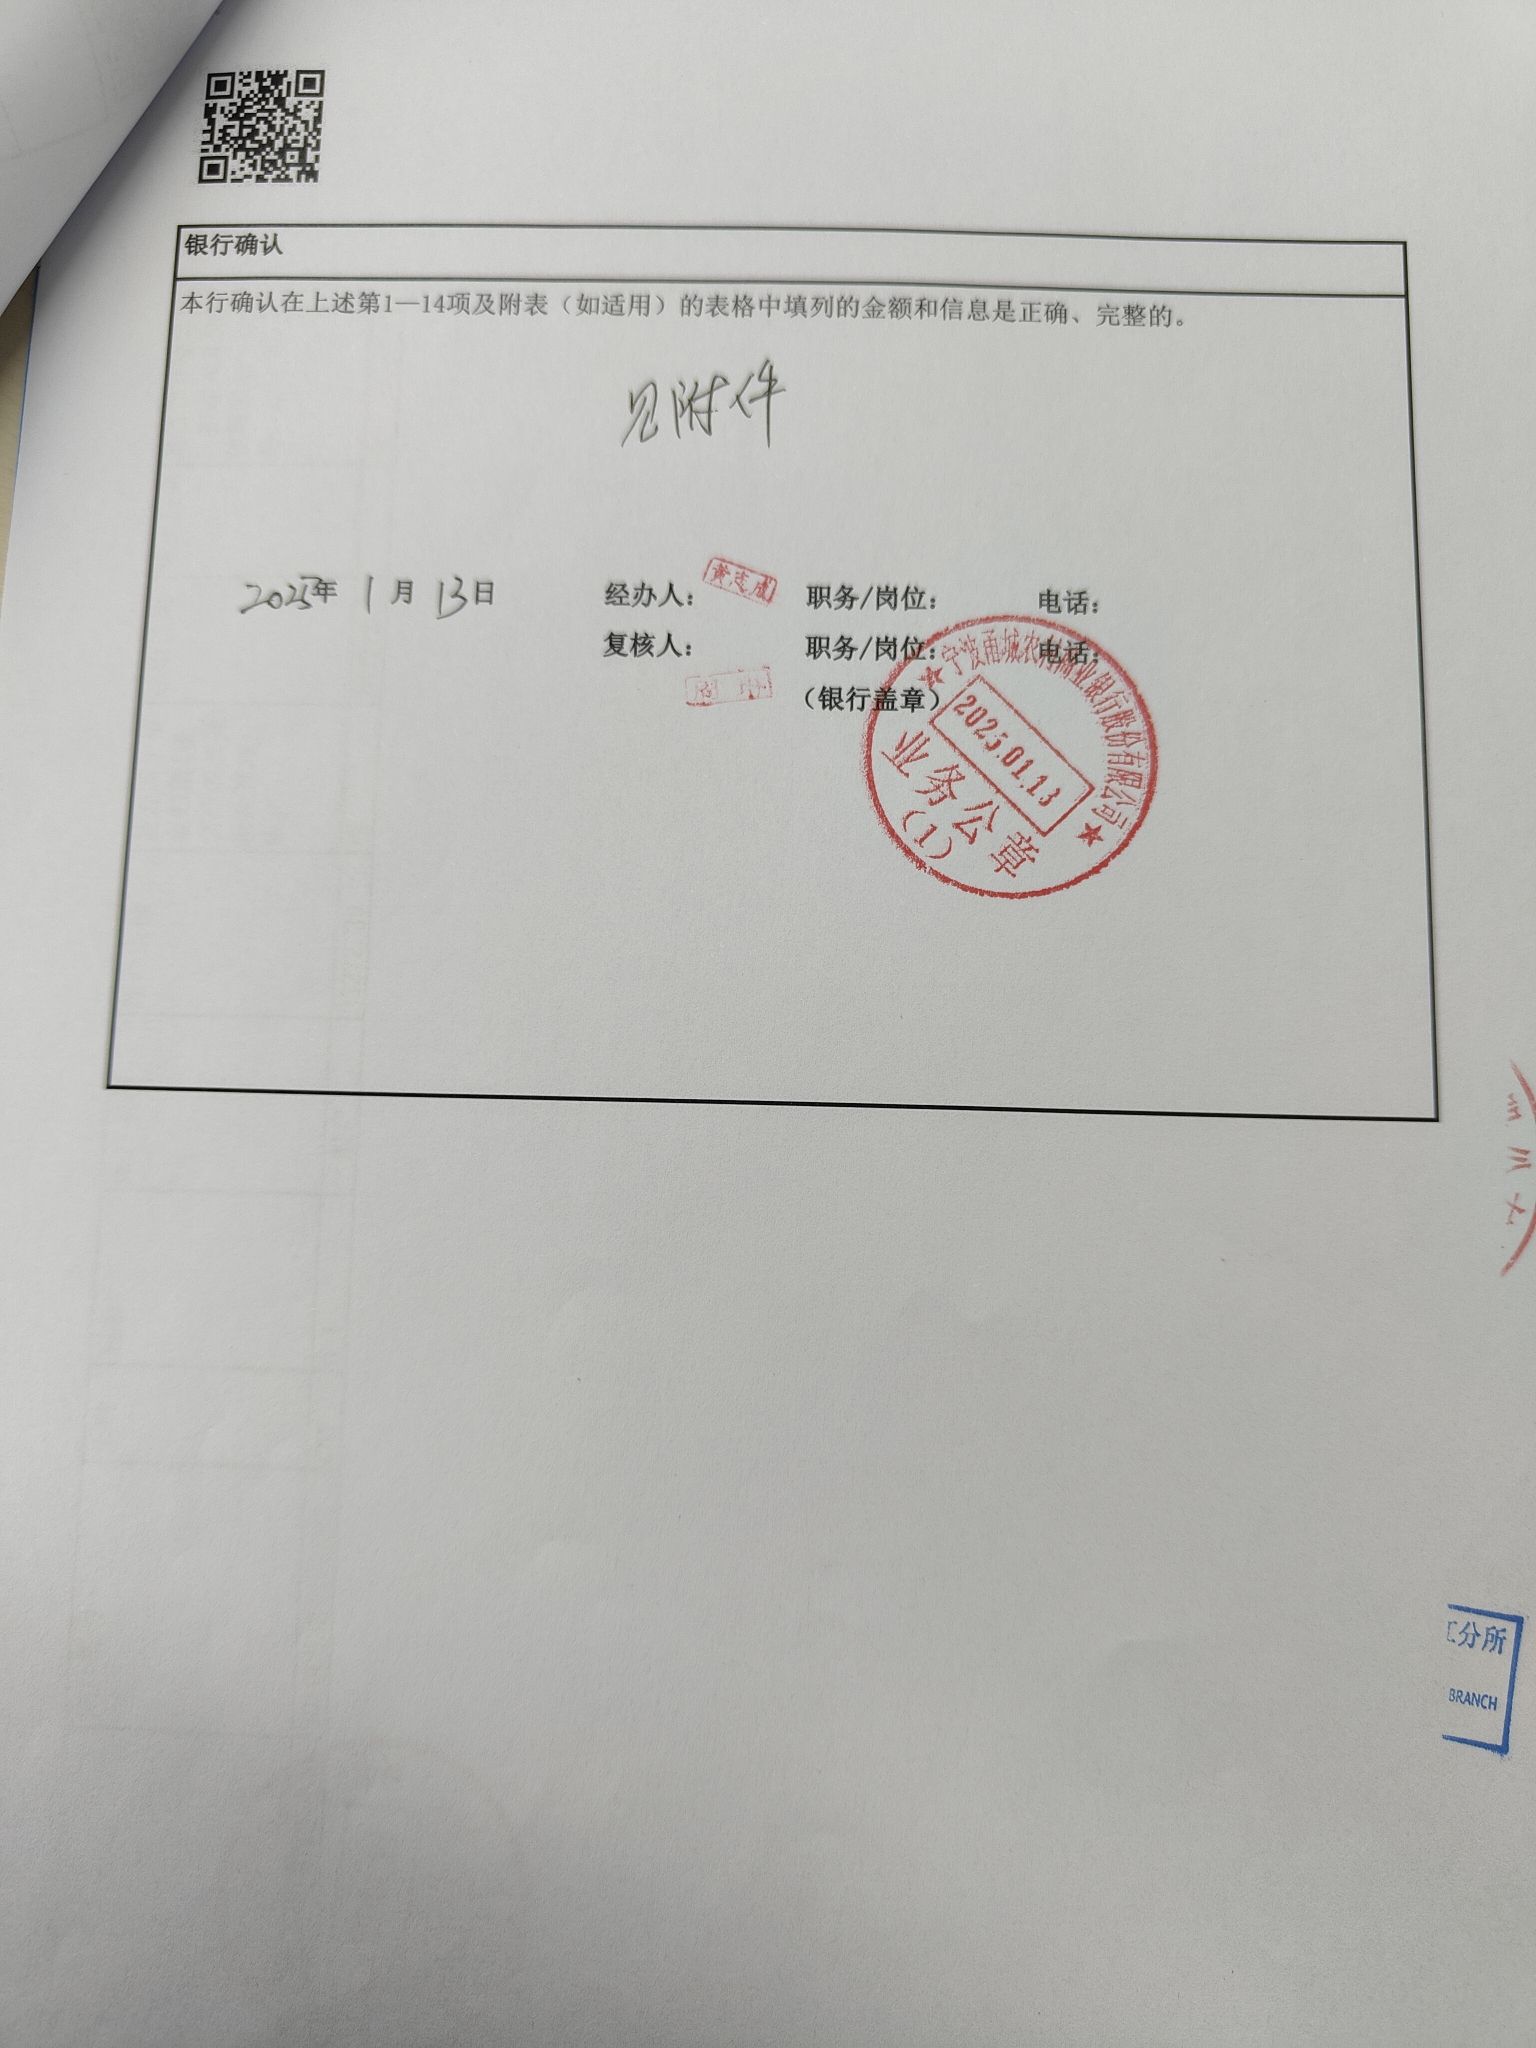 银行确认
本行确认在上述第1—14项及附表（如适用）的表格中填列的金额和信息是正确、完整的。
见附件
2025年 1月 13日 经办人： 黄志成 职务/岗位： 电话：
复核人： 职务/岗位： 电话：
（银行盖章）
宁波甬城农村商业银行股份有限公司
2025.01.13
业务公章
(1)
分所
BRANCH